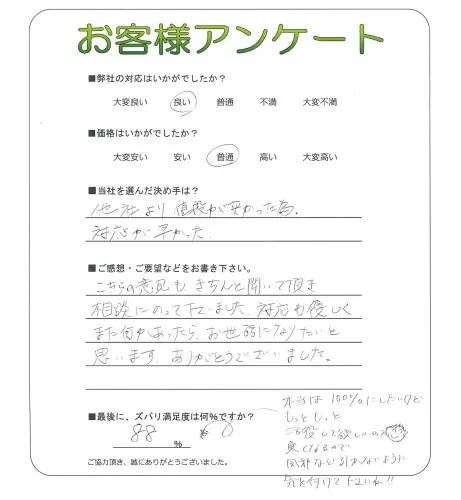 お客様アンケート
■弊社の対応はいかがでしたか?
大変良い 良い 普通 不満 大変不満
■価格はいかがでしたか?
大変安い 安い 普通 高い 大変高い
■当社を選んだ決め手は?
他社より値段が安かった為.
対応が早かった.
■ご感想・ご要望などをお書き下さい。
こちらの意見も きちんと聞いて頂き
相談にのって下さいました. 対応も優しく
また何かあったら、お世話になりたいと
思います. ありがとうございました。
■最後に、ズバリ満足度は何%ですか?
88 %
ご協力頂き、誠にありがとうございました。
本当は 100%にしたいけど
もっと もっと
活役して欲しいので
なるので
ないように
気を付けて下さいね!!